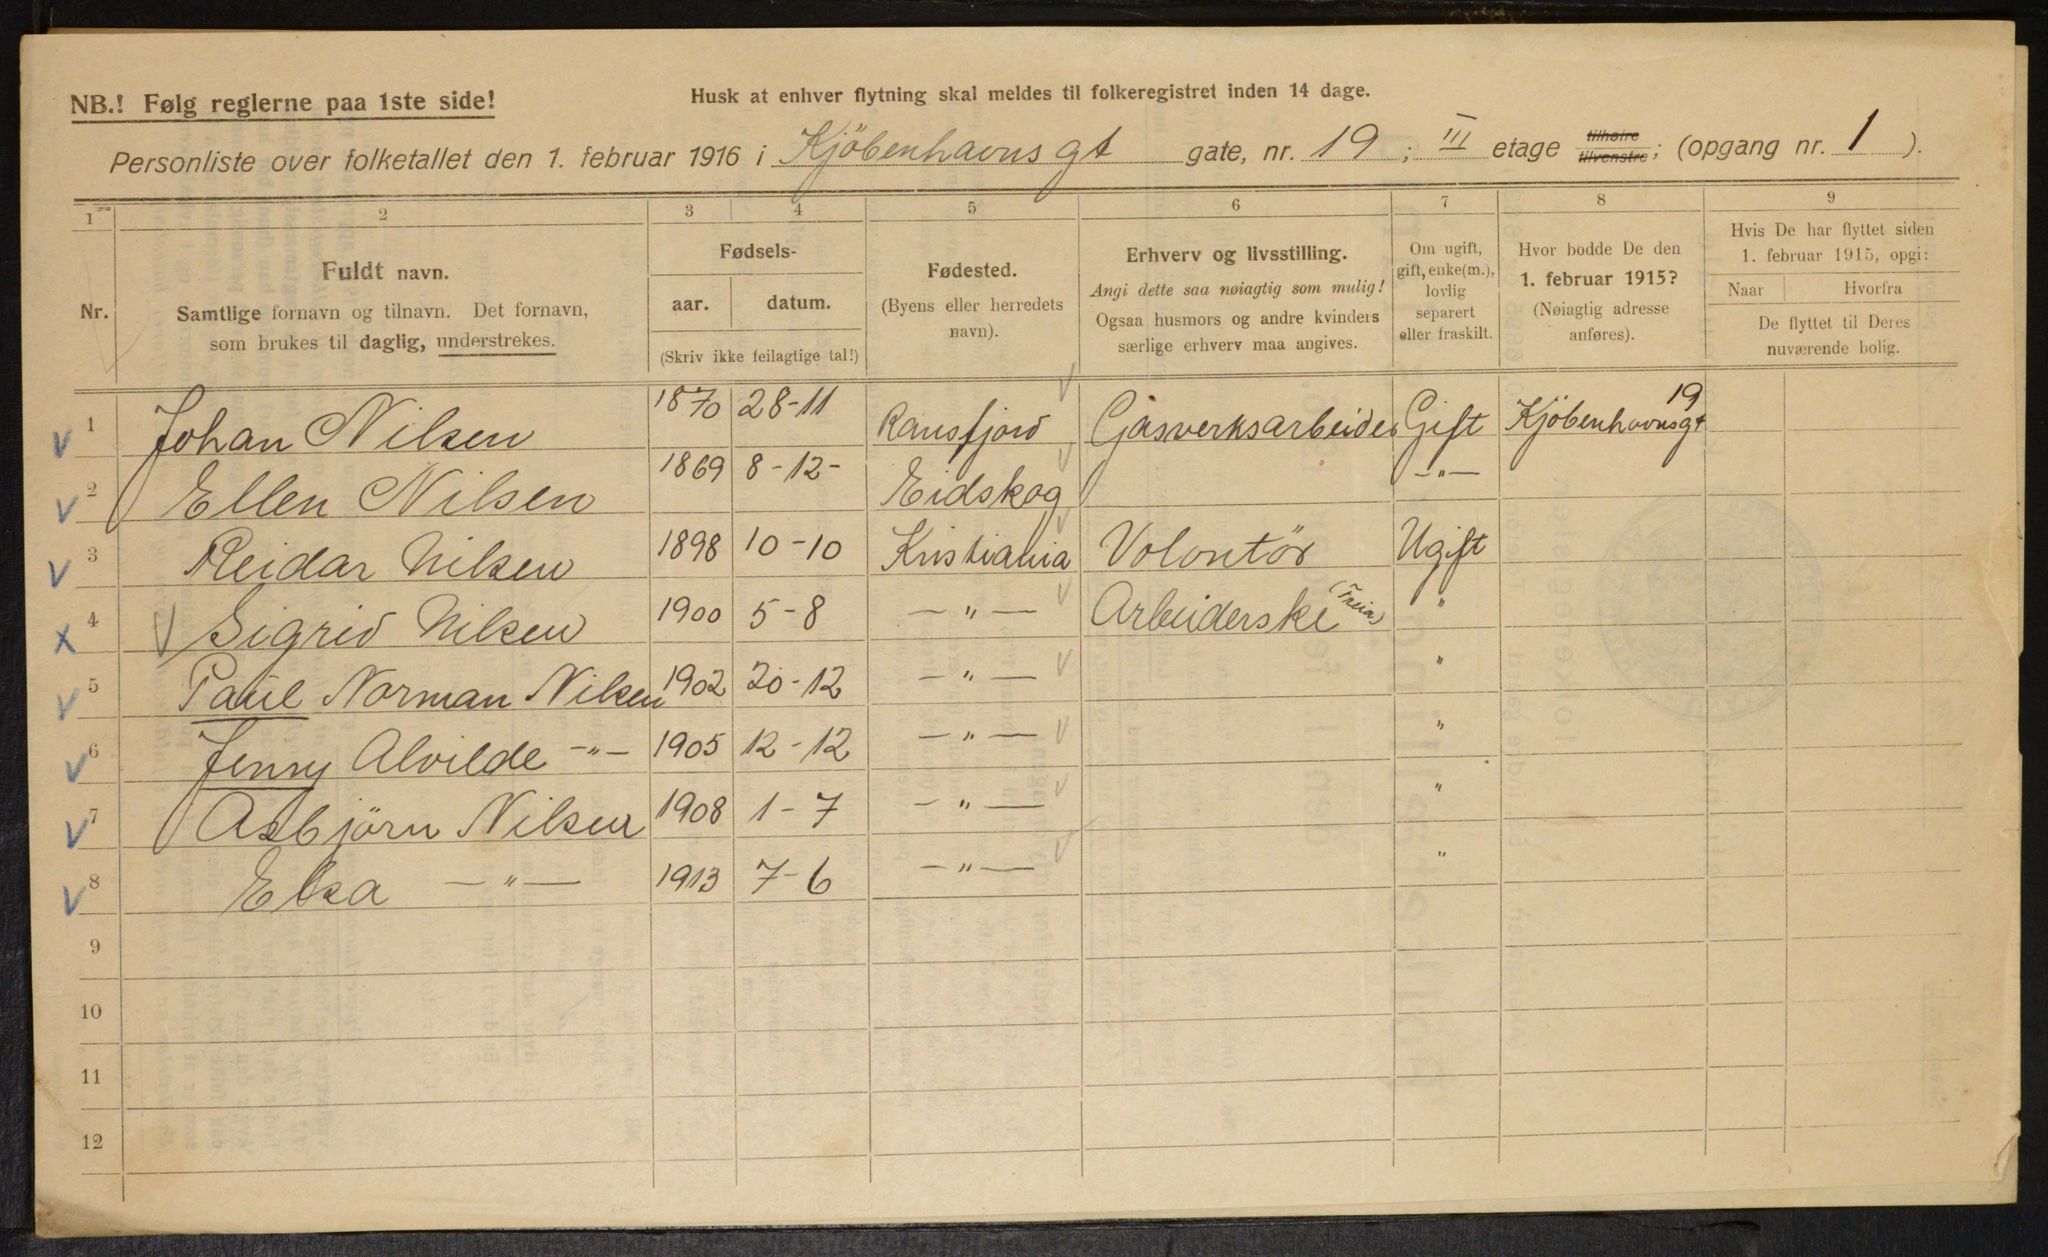 NB.! Følg reglerne paa 1ste side!
Husk at enhver flytning skal meldes til folkeregistret inden 14 dage.
Personliste over folketallet den 1. februar 1916 i Kjöbenhavns gt gate, nr. 19 ; III etage tilhøire tilvenstre; (opgang nr. 1 ).
1 2 3 4 5 6 7 8 9
Nr.
Fuldt navn.
Samtlige fornavn og tilnavn. Det fornavn,
som brukes til daglig, understrekes.
Fødsels-
aar. datum.
(Skriv ikke feilagtige tal!)
Fødested.
(Byens eller herredets
navn).
Erhverv og livsstilling.
Angi dette saa nøiagtig som mulig!
Ogsaa husmors og andre kvinders
særlige erhverv maa angives.
Om ugift,
gift, enke(m.),
lovlig
separert
eller fraskilt.
Hvor bodde De den
1. februar 1915?
(Nøiagtig adresse
anføres).
Hvis De har flyttet siden
1. februar 1915, opgi:
Naar Hvorfra
De flyttet til Deres
nuværende bolig.
1 Johan Nilsen 1870 28-11 Ransfjord Gasverksarbeider Gift Kjöbenhavnsgt 19
2 Ellen Nilsen 1869 8-12- Eidskog -"-
3 Reidar Nilsen 1898 10-10 Kristiania Volontör Ugift
4 Sigrid Nilsen 1900 5-8 -"- Arbeiderske (Freia) "
5 Paul Norman Nilsen 1902 20-12 -"- "
6 Jenny Alvilde -"- 1905 12-12 -"- "
7 Asbjörn Nilsen 1908 1-7 -"- "
8 Elsa -"- 1913 7-6 -"- "
9
10
11
12